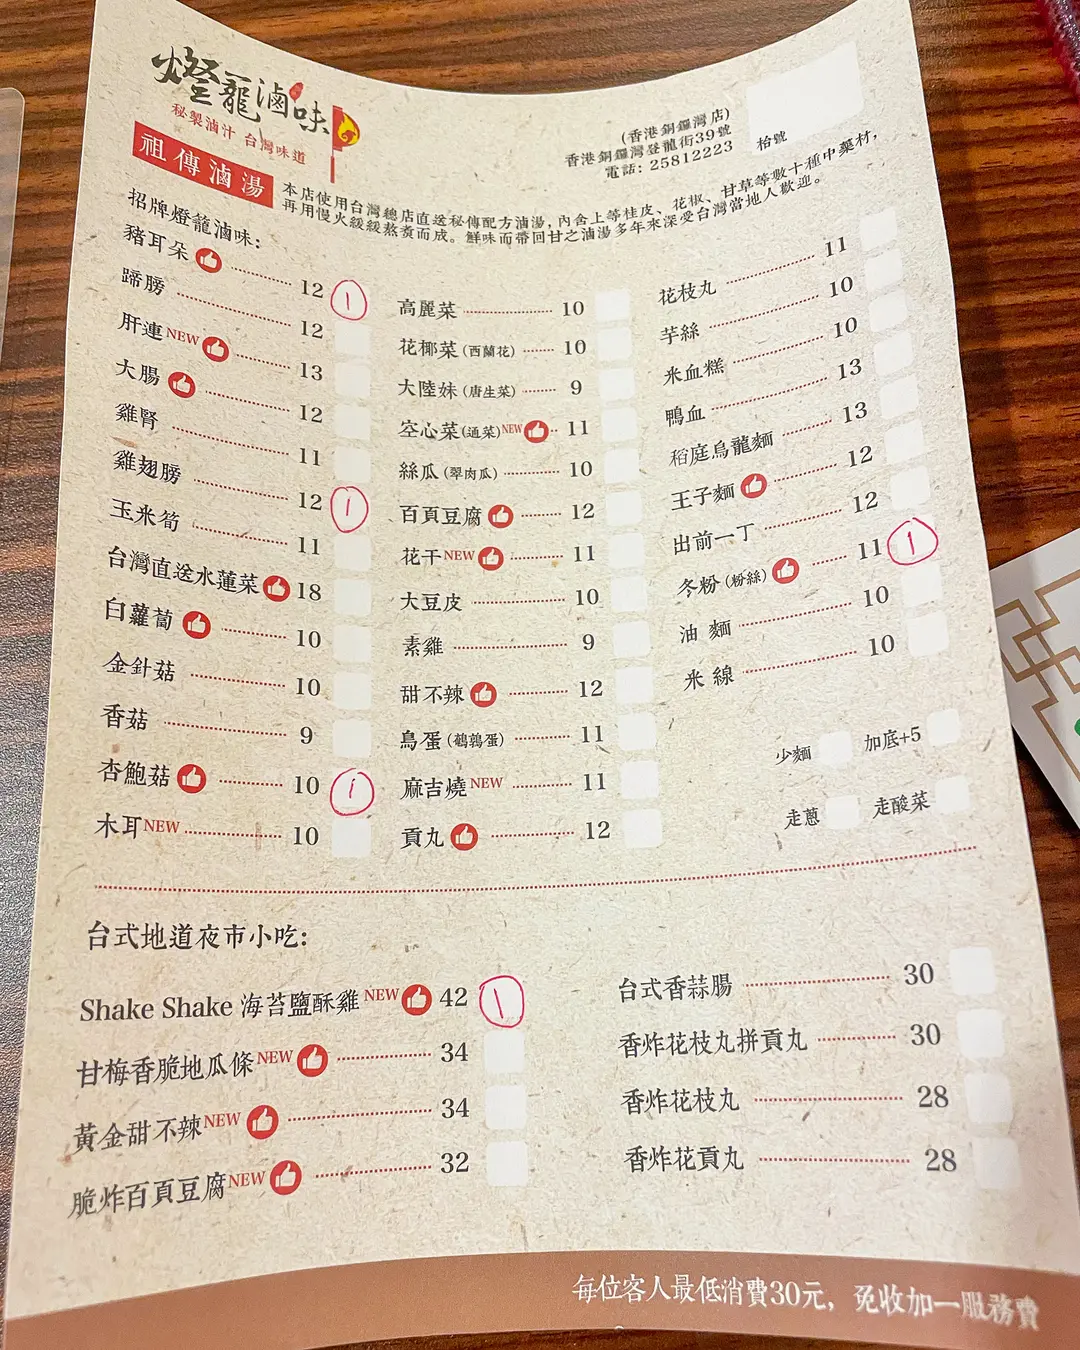 燈籠滷味
秘製滷汁 台灣味道
(香港銅鑼灣店)
香港銅鑼灣登龍街39號
電話: 25812223
枱號
祖傳滷湯
本店使用台灣總店直送秘傳配方滷湯,內含上等桂皮、花椒、甘草等數十種中藥材,
再用慢火緩緩熬煮而成。鮮味而帶回甘之滷湯多年來深受台灣當地人歡迎。
招牌燈籠滷味:
豬耳朵 12 1
蹄膀 12
肝連 NEW 13
大腸 12
雞腎 11
雞翅膀 12 1
玉米筍 11
台灣直送水蓮菜 18
白蘿蔔 10
金針菇 10
香菇 9
杏鮑菇 10 1
木耳 NEW 10
高麗菜 10
花椰菜 (西蘭花) 10
大陸妹 (唐生菜) 9
空心菜 (通菜) NEW 11
絲瓜 (翠肉瓜) 10
百頁豆腐 12
花干 NEW 11
大豆皮 10
素雞 9
甜不辣 12
鳥蛋 (鵪鶉蛋) 11
麻吉燒 NEW 11
貢丸 12
花枝丸 11
芋絲 10
米血糕 10
鴨血 13
稻庭烏龍麵 13
王子麵 12
出前一丁 12
冬粉 (粉絲) 11 1
油 麵 10
米 線 10
少麵 加底+5
走蔥 走酸菜
台式地道夜市小吃:
Shake Shake 海苔鹽酥雞 NEW 42 1
甘梅香脆地瓜條 NEW 34
黃金甜不辣 NEW 34
脆炸百頁豆腐 NEW 32
台式香蒜腸 30
香炸花枝丸拼貢丸 30
香炸花枝丸 28
香炸花貢丸 28
每位客人最低消費30元, 免收加一服務費